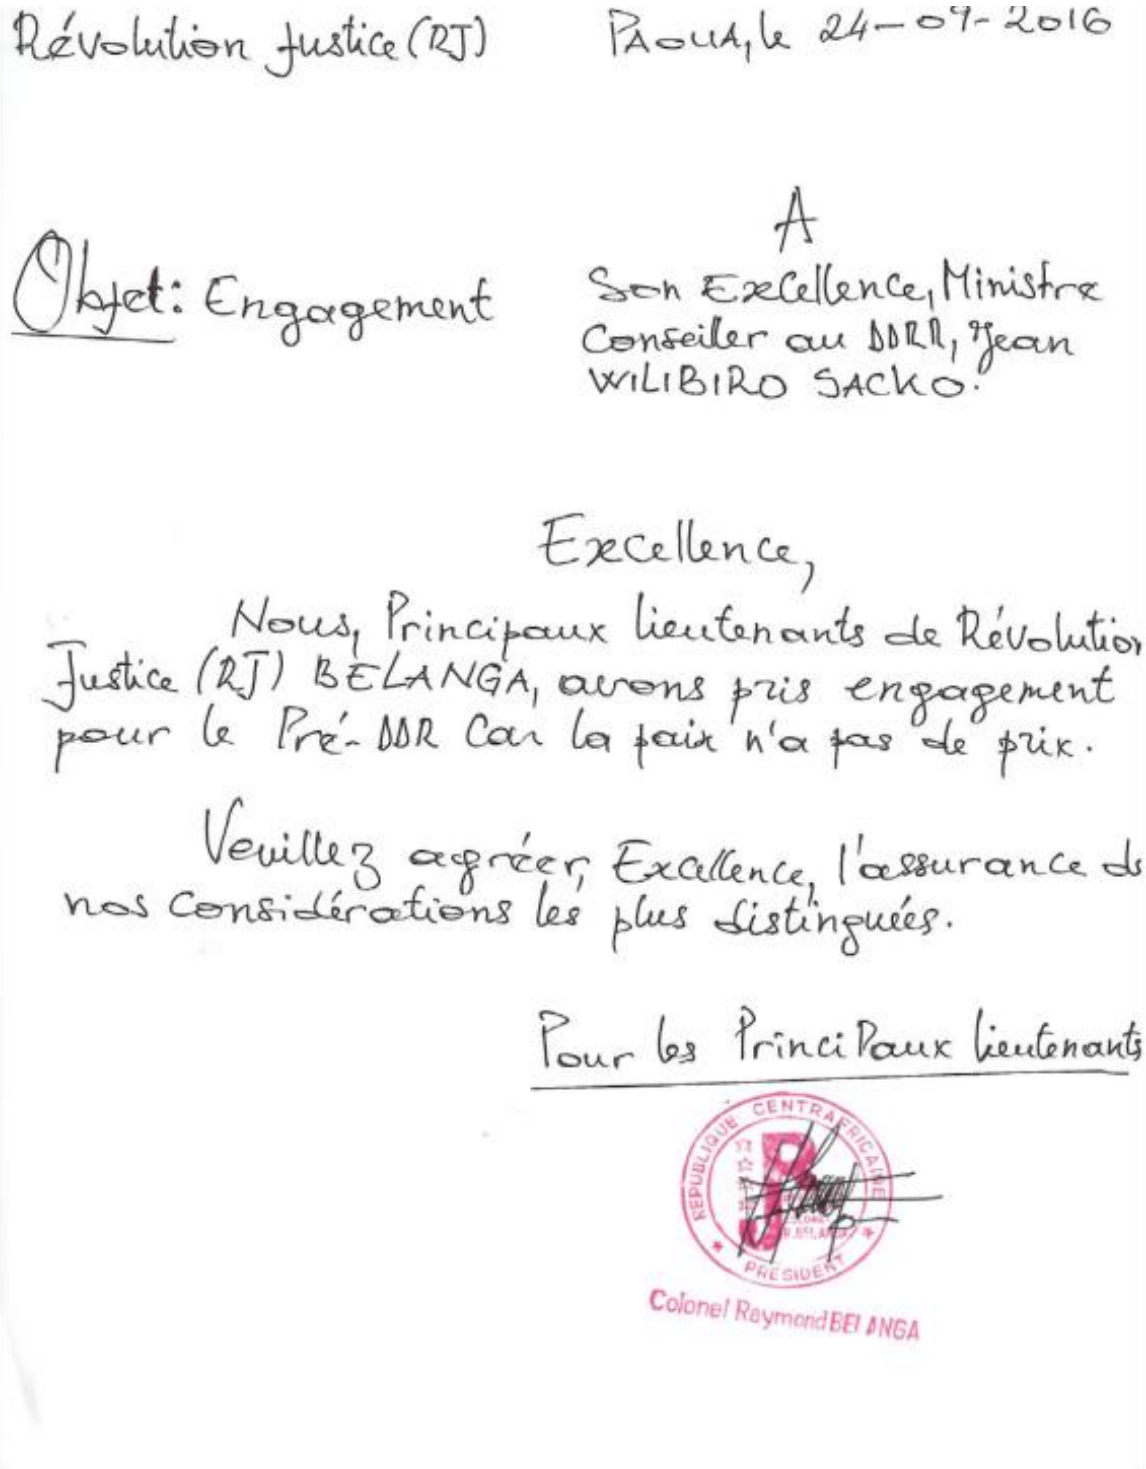 Révolution Justice (RJ)
PAOUA, le 24-09-2016
A
Son Excellence, Ministre
Conseiler au DDRR, Jean
WILIBIRO SACKO.
Objet: Engagement
Excellence,
Nous, Principaux lieutenants de Révolution
Justice (RJ) BELANGA, avons pris engagement
pour le Pré-DDR Car la paix n'a pas de prix.
Veuillez agréer, Excellence, l'assurance de
nos Considérations les plus distinguées.
Pour les Principaux lieutenants
REPUBLIQUE CENTRAFRICAINE
R.BELANGA
PRESIDENT
Colonel Raymond BELANGA